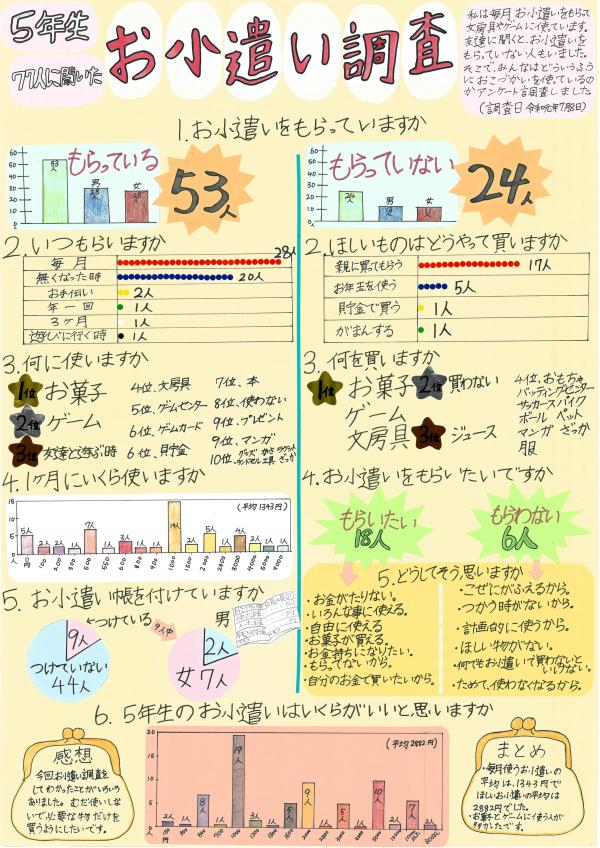 5年生
77人に聞いた
お小遣い調査
私は毎月お小遣いをもらって
文房具やゲームに使っています。
友達に聞くと、お小遣いを
もらっていない人もいました。
そこで、みんなはどういうふう
におこづかいを使っているの
かアンケート調査しました。
(調査日 令和元年7月8日)
1.お小遣いをもらっていますか
もらっている
60
50
40
30
20
10
0
53人
男
女
25人
53人
もらっていない
60
50
40
30
20
10
0
24人
男
女
24人
2.いつもらいますか
毎月 28人
無くなった時 20人
お手伝い 2人
年一回 1人
3ヶ月 1人
遊びに行く時 1人
3.何に使いますか
1位 お菓子
2位 ゲーム
3位 友達と遊ぶ時
4位、文房具
5位、ゲームセンター
6位、ゲームカード
6位、貯金
7位、本
8位、使わない
9位、プレゼント
9位、マンガ
10位、グッズ かさ ラケット
工具 ざっか
4.1ヶ月にいくら使いますか
(平均1343円)
15
10
5
0
人
5人 2人 2人 1人 7人 1人 3人 1人 1人 14人 1人 2人 5人 2人 4人 2人 1人 1人
100 200 300 500 550 600 800 900 1000 1500 2000 2500 3000 4000 5000
5.お小遣い帳を付けていますか
つけている
9人
つけていない
44人
9人中
男
2人
女7人
2.ほしいものはどうやって買いますか
親に買ってもらう 17人
お年玉を使う 5人
貯金で買う 1人
がまんする 1人
3.何を買いますか
1位 お菓子
ゲーム
文房具
2位 買わない
3位 ジュース
4位、おもちゃ
バッティングセンター
サッカースパイク
ボール ペット
マンガ ざっか
服
4.お小遣いをもらいたいですか
もらいたい
18人
もらわない
6人
5.どうしてそう思いますか
・お金がたりない。
・いろんな事に使える。
・自由に使える
・お菓子が買える。
・お金持ちになりたい。
・もらってないから。
・自分のお金で買いたいから。
・こぜにがふえるから。
・つかう時がないから。
・計画的に使うから。
・ほしい物がない。
・何でもお小遣いで買わないと
いけない。
・ためて、使わなくなるから。
6.5年生のお小遣いはいくらがいいと思いますか
(平均2882円)
20
15
10
5
0
2人 1人 8人 2人 19人 3人 1人 5人 9人 1人 5人 1人 10人 7人 2人 1人
感想
今回お小遣い調査を
してわかったことがいろいろ
ありました。むだ使いしな
いで必要な物だけを
買うようにしたいです。
まとめ
・毎月使うお小遣いの
平均は、1343円で
ほしいお小遣いの平均は
2882円でした。
・お菓子とゲームに使う人が
多かったです。